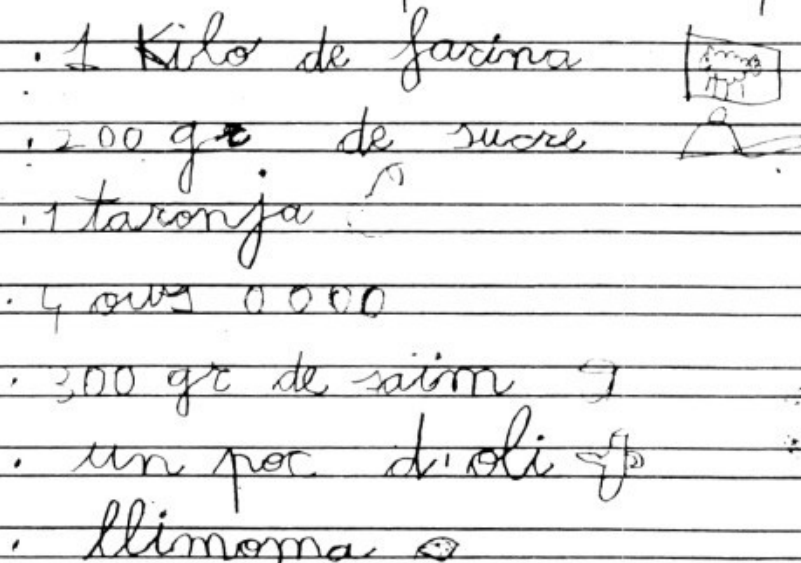 · 1 Kilo de farina
· 200 gr de sucre
· 1 taronja
· 4 ous
· 300 gr de saïm
· un poc d'oli
· llimoma